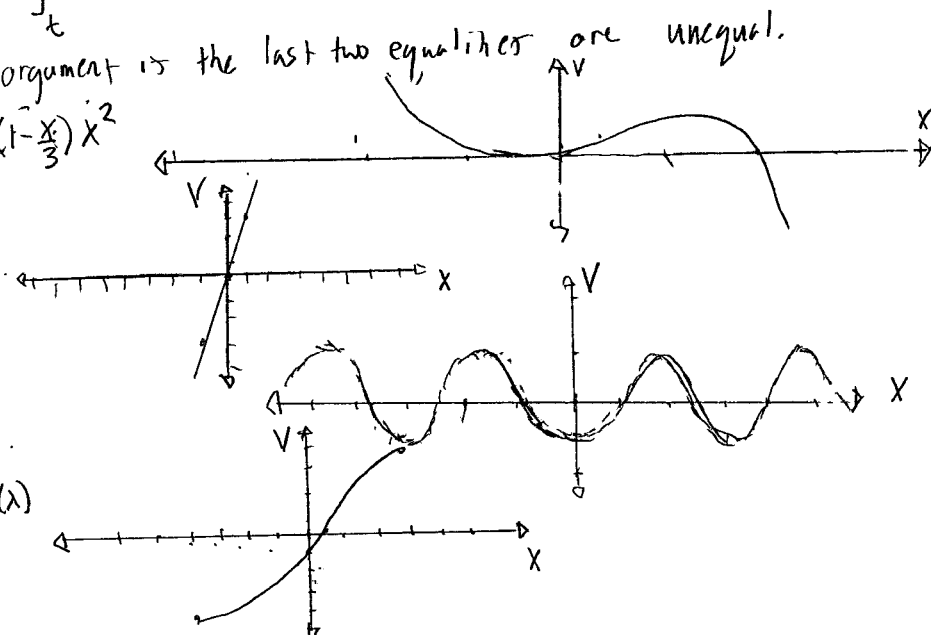 ∫t
argument is the last two equalities are unequal.
(1-x/3)x²
V
X
V
X
V
X
V
(λ)
X